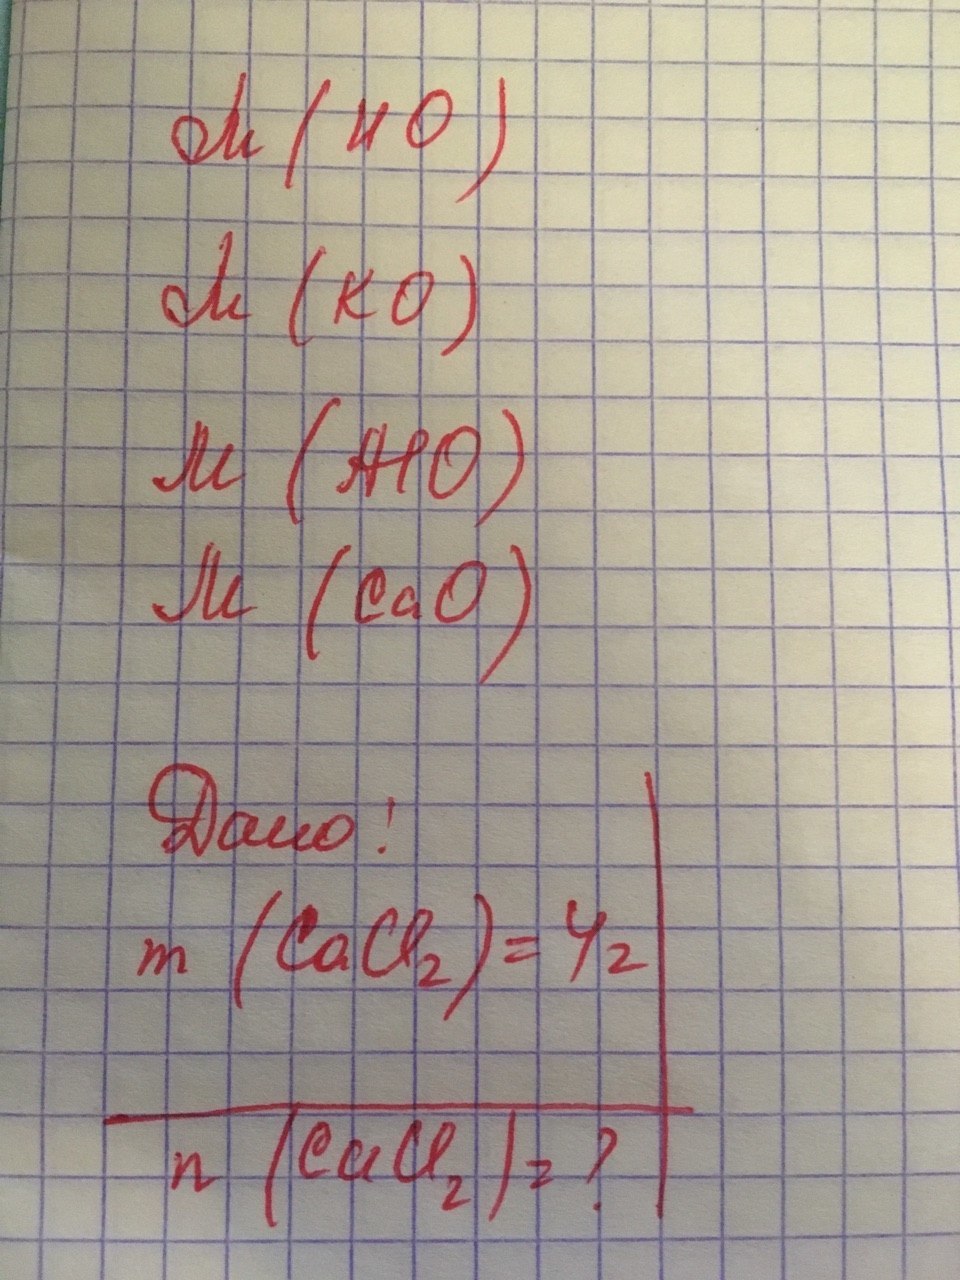 M (HO)
M (KO)
M (AlO)
M (CaO)
Дано:
m (CaCl₂) = 4г
n (CaCl₂) = ?